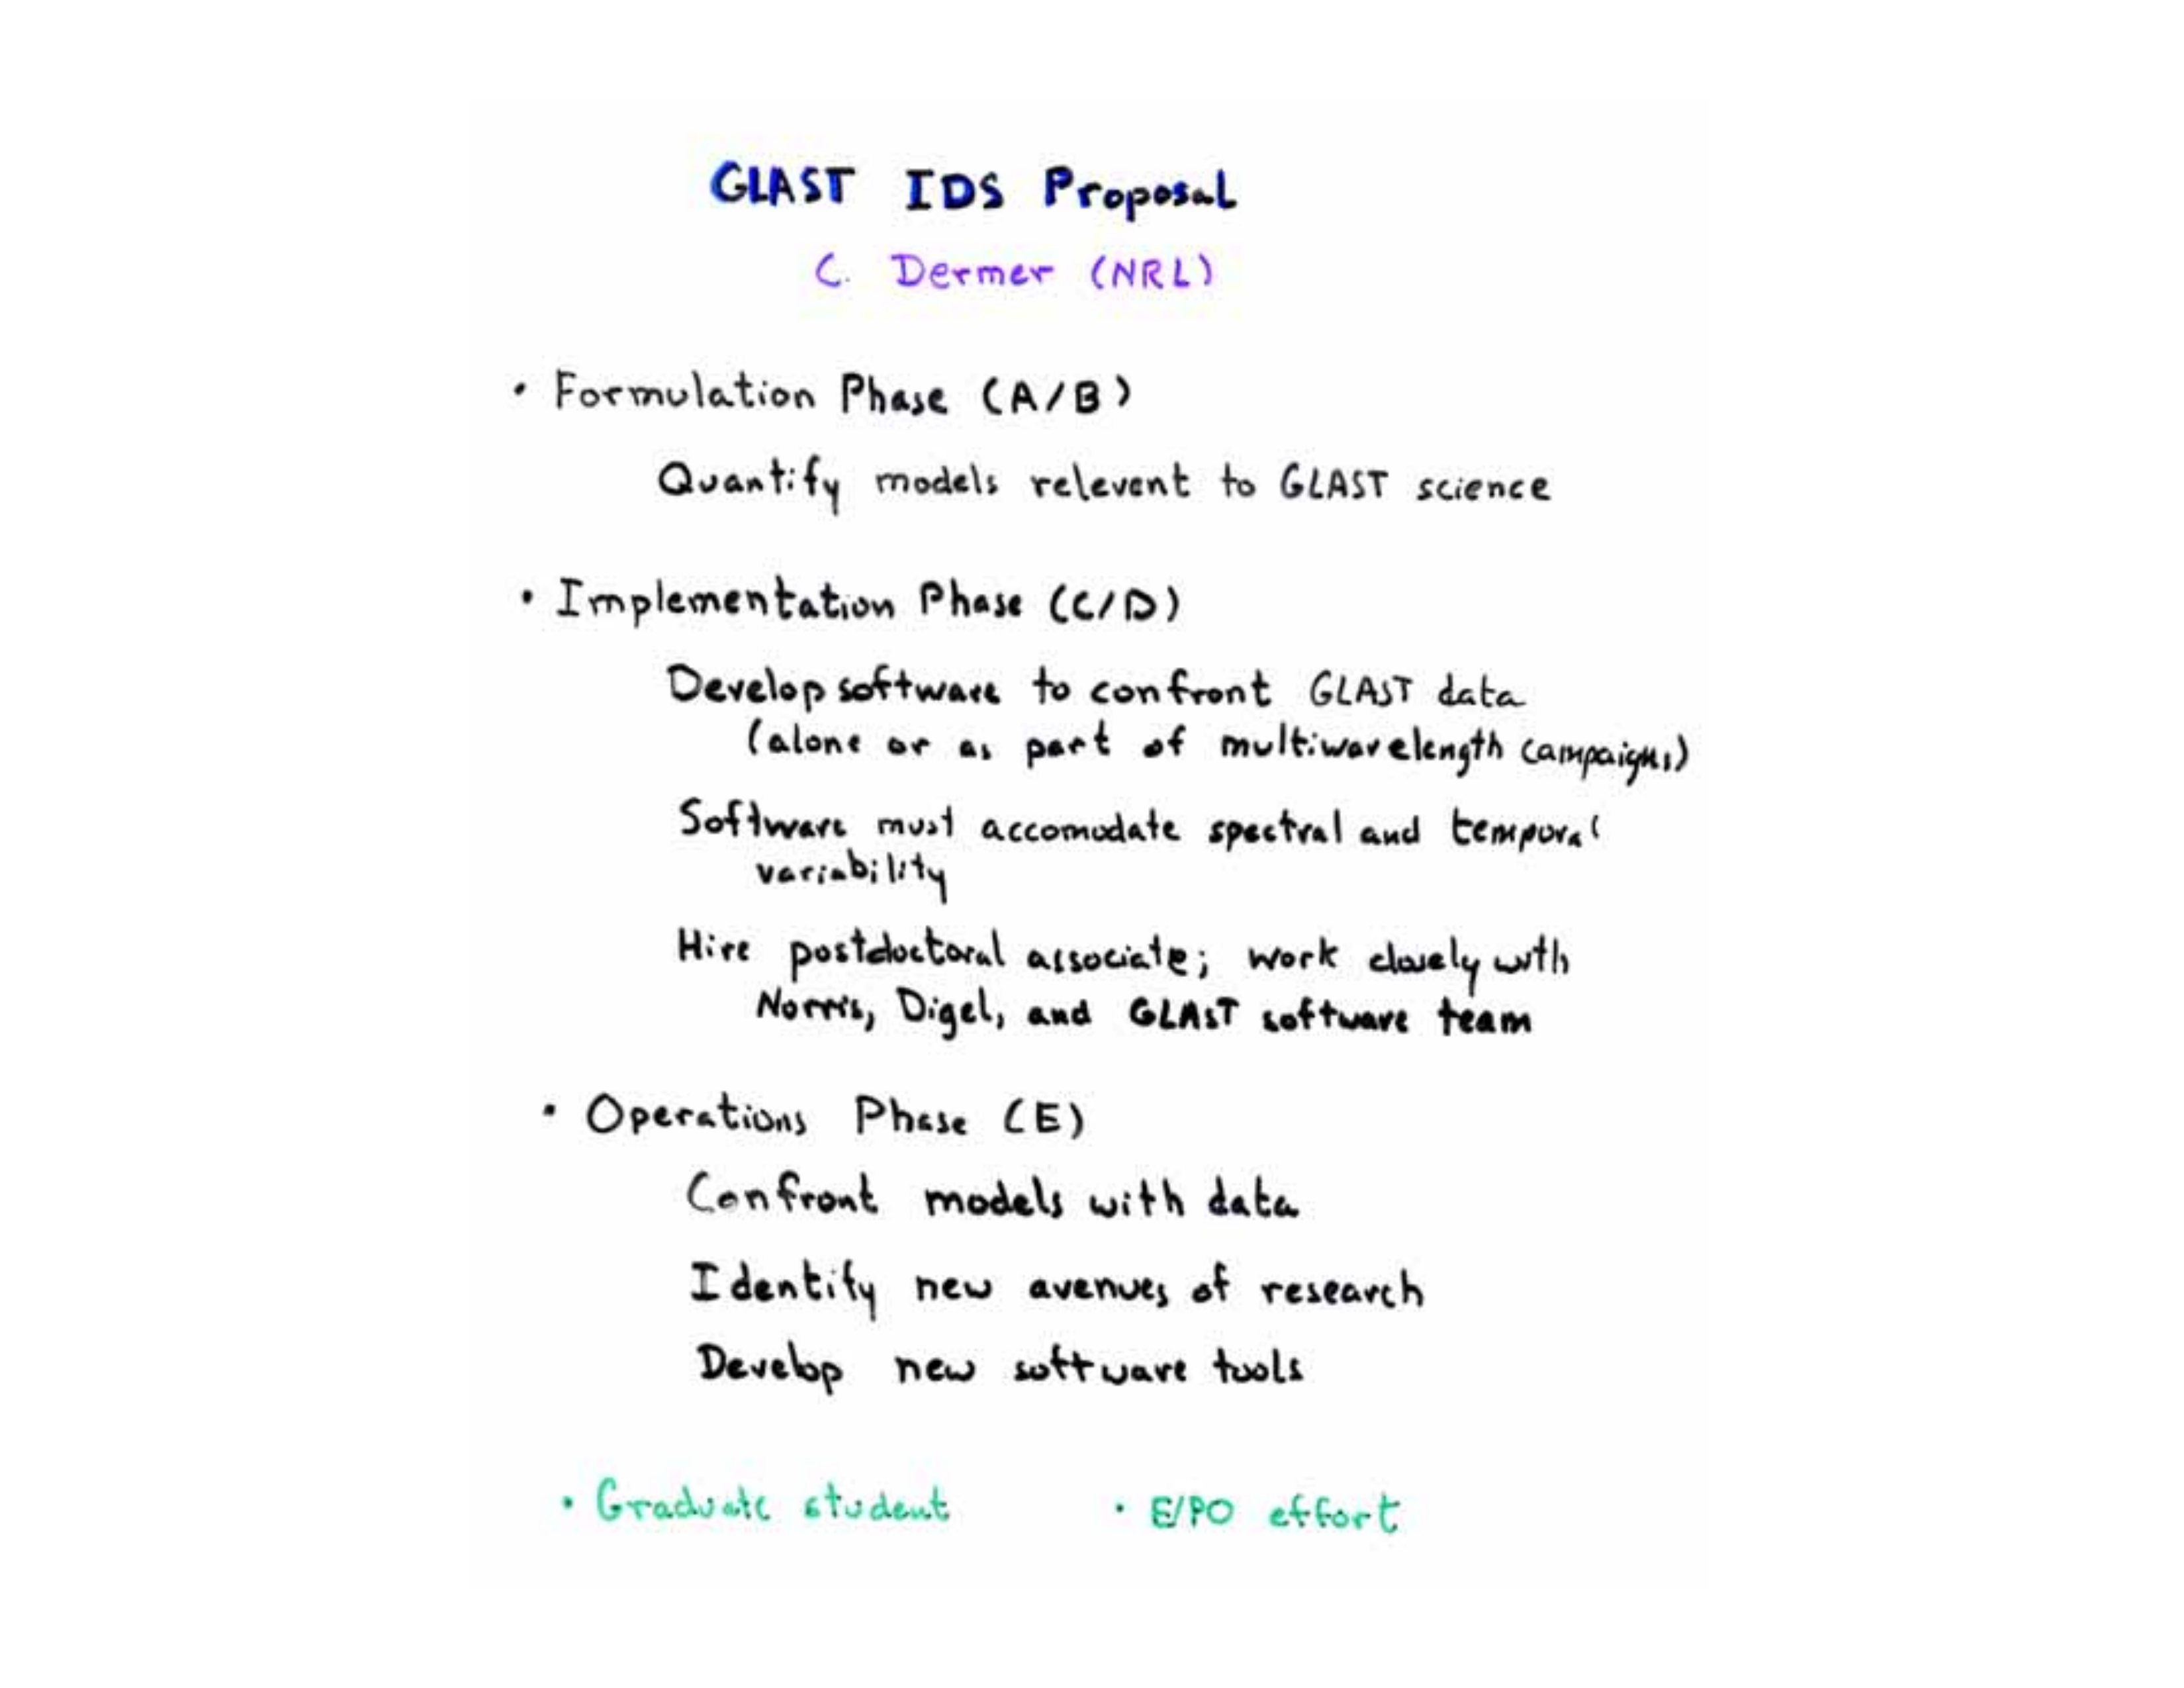 GLAST IDS Proposal
C. Dermer (NRL)
• Formulation Phase (A/B)
Quantify models relevent to GLAST science
• Implementation Phase (C/D)
Develop software to confront GLAST data
(alone or as part of multiwavelength campaigns)
Software must accomodate spectral and temporal
variability
Hire postdoctoral associate; work closely with
Norris, Digel, and GLAST software team
• Operations Phase (E)
Confront models with data
Identify new avenues of research
Develop new software tools
• Graduate student • E/PO effort